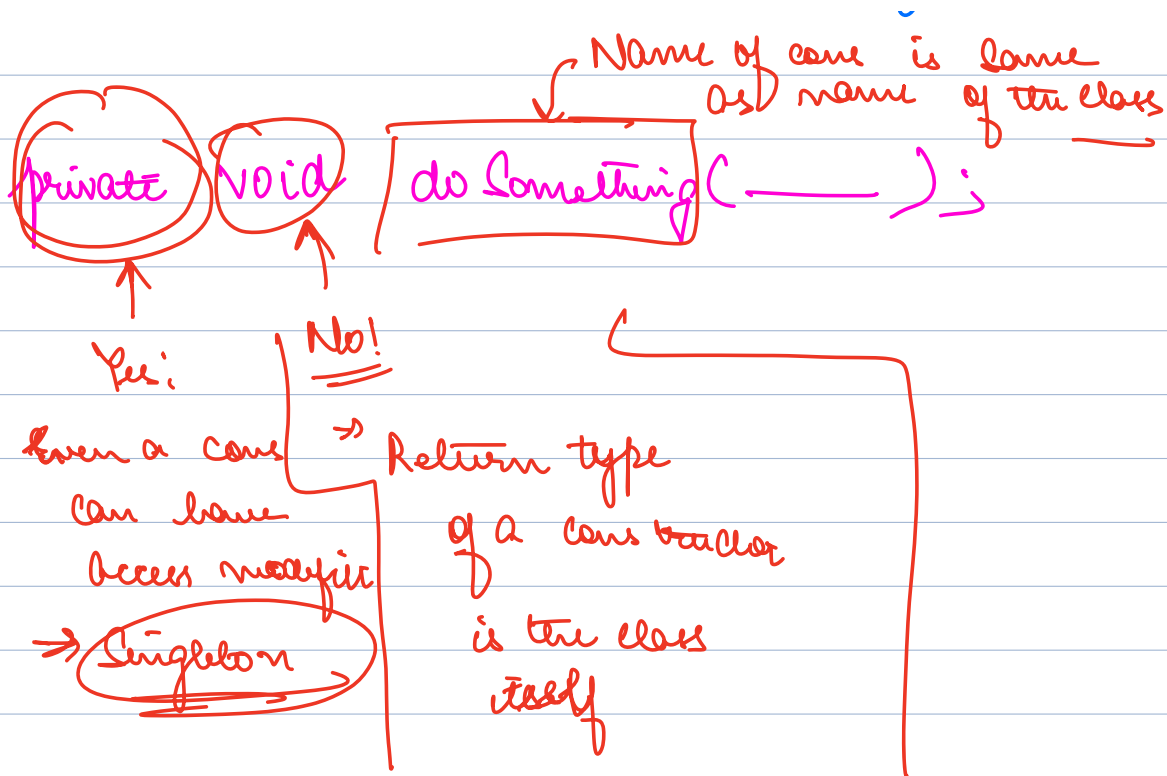 Name of cons is same
as name of the class
private void doSomething( ) ;
Yes!
Even a cons
can have
access modifier
⇒ Singleton
No!
→ Return type
of a constructor
is the class
itself